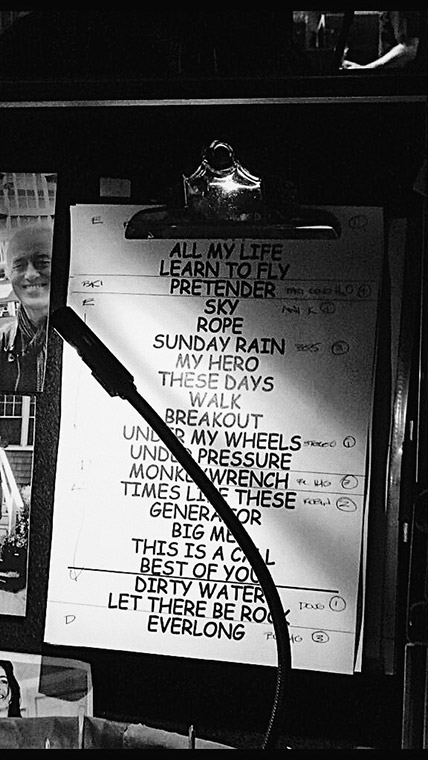 E
ALL MY LIFE
LEARN TO FLY
PRETENDER
SKY
ROPE
SUNDAY RAIN
MY HERO
THESE DAYS
WALK
BREAKOUT
UNDER MY WHEELS
UNDER PRESSURE
MONKEY WRENCH
TIMES LIKE THESE
GENERATOR
BIG ME
THIS IS A CALL
BEST OF YOU
DIRTY WATER
LET THERE BE ROCK
D EVERLONG